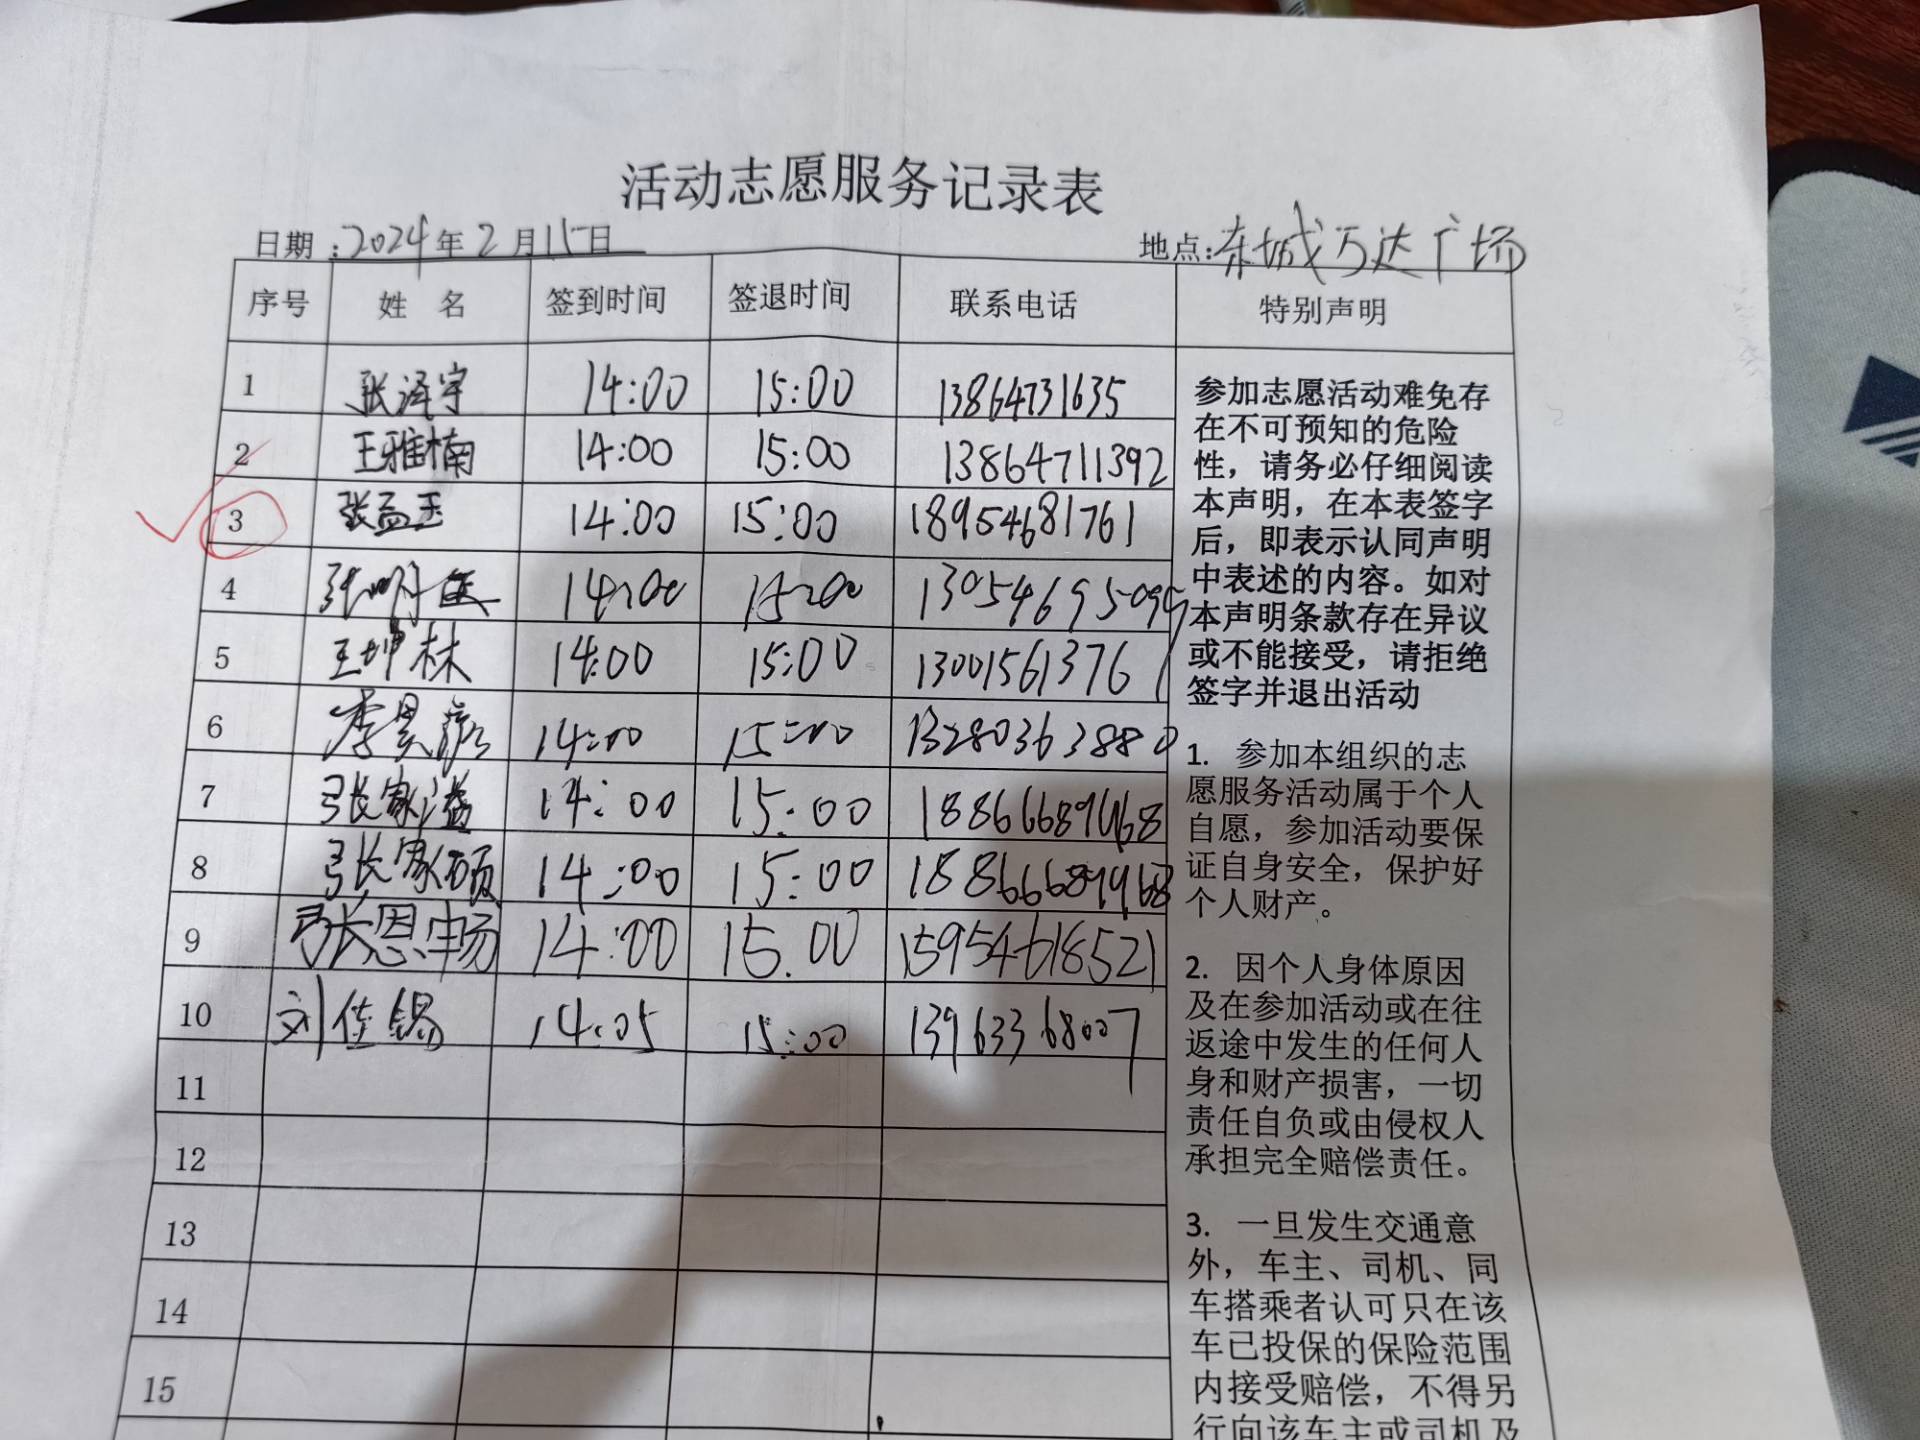 活动志愿服务记录表
日期：2024年2月15日 地点：东城万达广场
序号 姓名 签到时间 签退时间 联系电话 特别声明
1 张泽宇 14:00 15:00 13864731635
2 王雅楠 14:00 15:00 13864711392
3 张孟玉 14:00 15:00 18954681761
4 张明 14:00 15:00 13054695099
5 王坤林 14:00 15:00 13001561376
6 李昊 14:00 15:00 13280363880
7 张家溢 14:00 15:00 18866689968
8 张家硕 14:00 15:00 18866689968
9 张恩畅 14:00 15.00 15954618521
10 刘佳锡 14:05 15:00 13963368007
11
12
13
14
15
参加志愿活动难免存
在不可预知的危险
性，请务必仔细阅读
本声明，在本表签字
后，即表示认同声明
中表述的内容。如对
本声明条款存在异议
或不能接受，请拒绝
签字并退出活动
1. 参加本组织的志
愿服务活动属于个人
自愿，参加活动要保
证自身安全，保护好
个人财产。
2. 因个人身体原因
及在参加活动或在往
返途中发生的任何人
身和财产损害，一切
责任自负或由侵权人
承担完全赔偿责任。
3. 一旦发生交通意
外，车主、司机、同
车搭乘者认可只在该
车已投保的保险范围
内接受赔偿，不得另
行向该车主或司机及